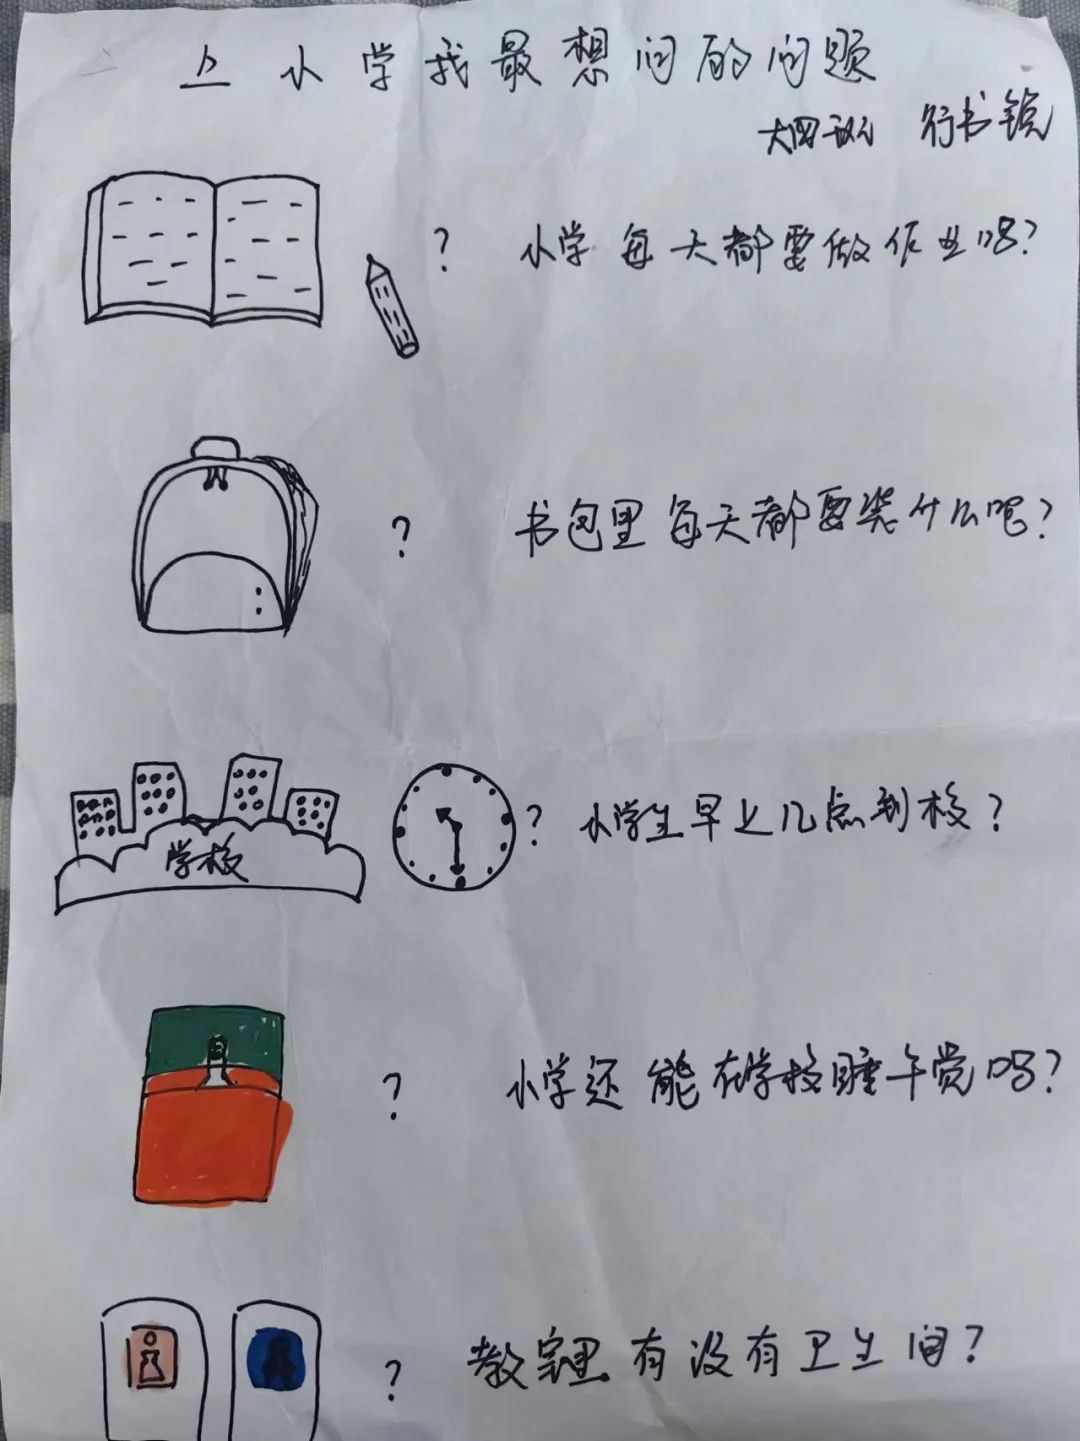 上小学我最想问的问题
大四班 行书锐
? 小学每天都要做作业吗?
? 书包里每天都要装什么呢?
学校
? 小学生早上几点到校?
? 小学还能在学校睡午觉吗?
? 教室里有没有卫生间?